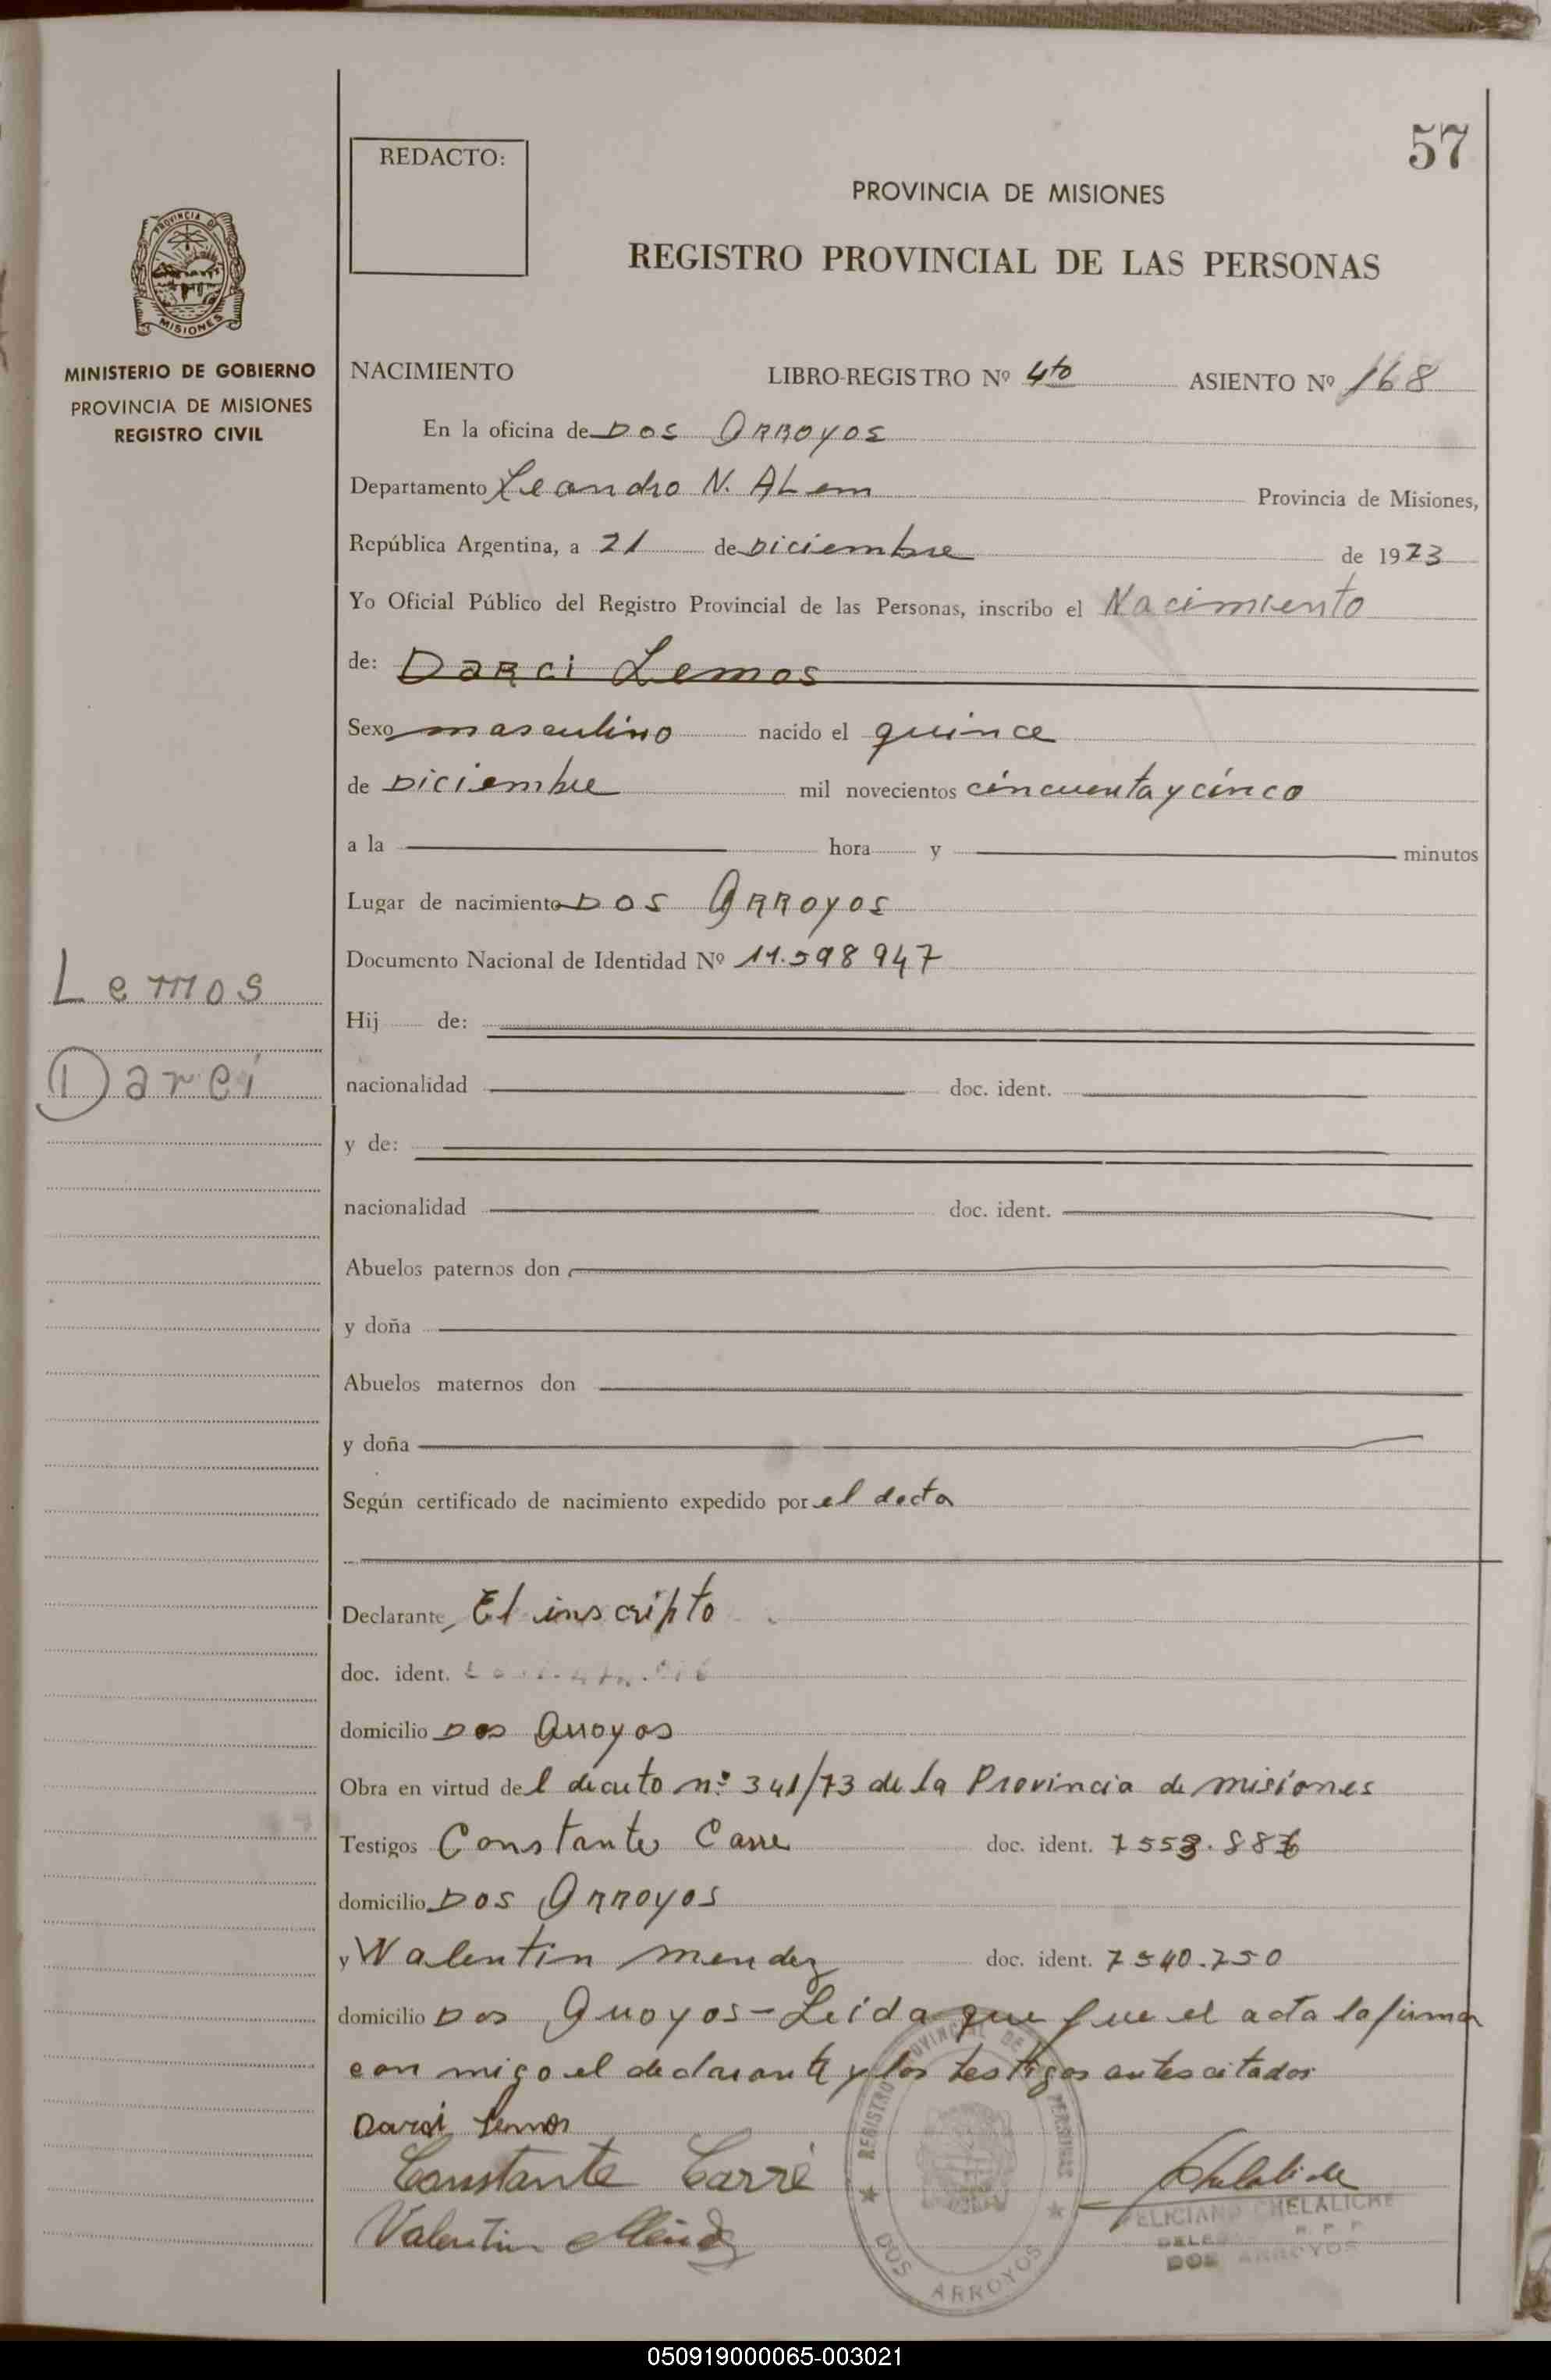 57
REDACTO:
PROVINCIA DE MISIONES
REGISTRO PROVINCIAL DE LAS PERSONAS
PROVINCIA DE
MISIONES
MINISTERIO DE GOBIERNO
PROVINCIA DE MISIONES
REGISTRO CIVIL
NACIMIENTO LIBRO-REGISTRO Nº 4to ASIENTO Nº 168
En la oficina de Dos Arroyos
Departamento Leandro N. ALem Provincia de Misiones,
República Argentina, a 21 de Diciembre de 1973
Yo Oficial Público del Registro Provincial de las Personas, inscribo el Nacimiento
de: Darci Lemos
Sexo masculino nacido el quince
de Diciembre mil novecientos cincuenta y cinco
a la hora y minutos
Lugar de nacimiento Dos Arroyos
Documento Nacional de Identidad Nº 11.598 947
Lemos
Hij de:
Darci
nacionalidad doc. ident.
y de:
nacionalidad doc. ident.
Abuelos paternos don
y doña
Abuelos maternos don
y doña
Según certificado de nacimiento expedido por el
Declarante El inscripto
doc. ident.
domicilio Dos Arroyos
Obra en virtud del decreto nº 341/73 de la Provincia de misiones
Testigos Constante Carre doc. ident.
domicilio Dos Arroyos
y Valentin mendez doc. ident. 7540.750
domicilio Dos Arroyos - Leida que fue el acta la firma
con migo el declarante y los testigos antes citados
Darci Lemos
Constante Carré
Valentin Mendez
REGISTRO PROVINCIAL DE LAS PERSONAS
DOS ARROYOS
FELICIANO CHELALICHE
DOS ARROYOS
050919000065-003021